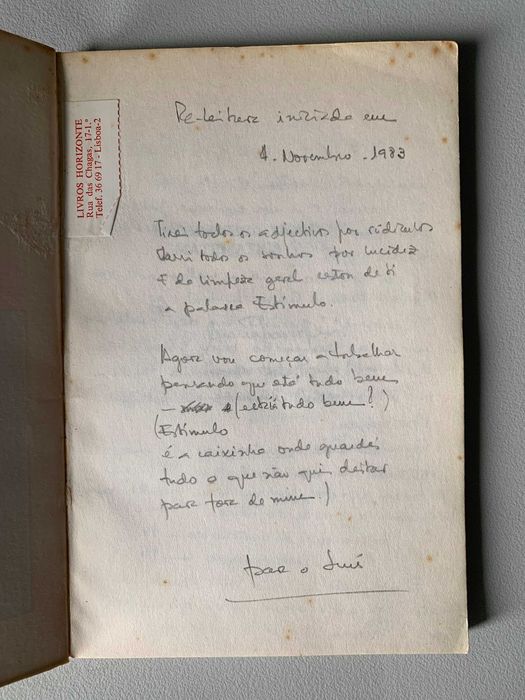 LIVROS HORIZONTE
Rua das Chagas, 17-1.º
Telef. 36 69 17 - Lisboa-2
Re-leitura iniciada em
4. Novembro. 1983
Tirei todos os adjectivos por ridículos
Varri todos os sonhos por lucidez
E da limpeza geral restou de ti
a palavra Estímulo.
Agora vou começar a trabalhar
pensando que está tudo bem
— (está tudo bem?)
(Estímulo
é a caixinha onde guardei
tudo o que não quis deitar
para fora de mim.)
para o Luís